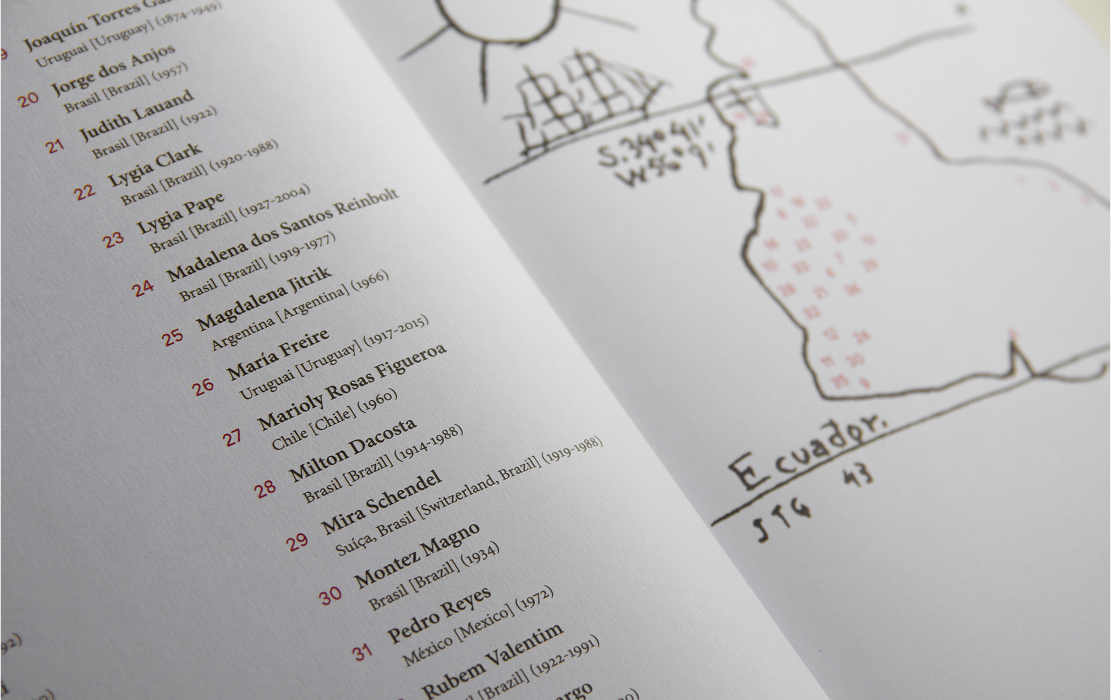 Joaquín Torres
Uruguai [Uruguay] (1874-1949)
20 Jorge dos Anjos
Brasil [Brazil] (1957)
21 Judith Lauand
Brasil [Brazil] (1922)
22 Lygia Clark
Brasil [Brazil] (1920-1988)
23 Lygia Pape
Brasil [Brazil] (1927-2004)
24 Madalena dos Santos Reinbolt
Brasil [Brazil] (1919-1977)
25 Magdalena Jitrik
Argentina [Argentina] (1966)
26 María Freire
Uruguai [Uruguay] (1917-2015)
27 Marioly Rosas Figueroa
Chile [Chile] (1960)
28 Milton Dacosta
Brasil [Brazil] (1914-1988)
29 Mira Schendel
Suíça, Brasil [Switzerland, Brazil] (1919-1988)
30 Montez Magno
Brasil [Brazil] (1934)
31 Pedro Reyes
México [Mexico] (1972)
Rubem Valentim
[Brazil] (1922-1991)
S. 34º 41'
W 56º 9'
Ecuador.
JTG 43